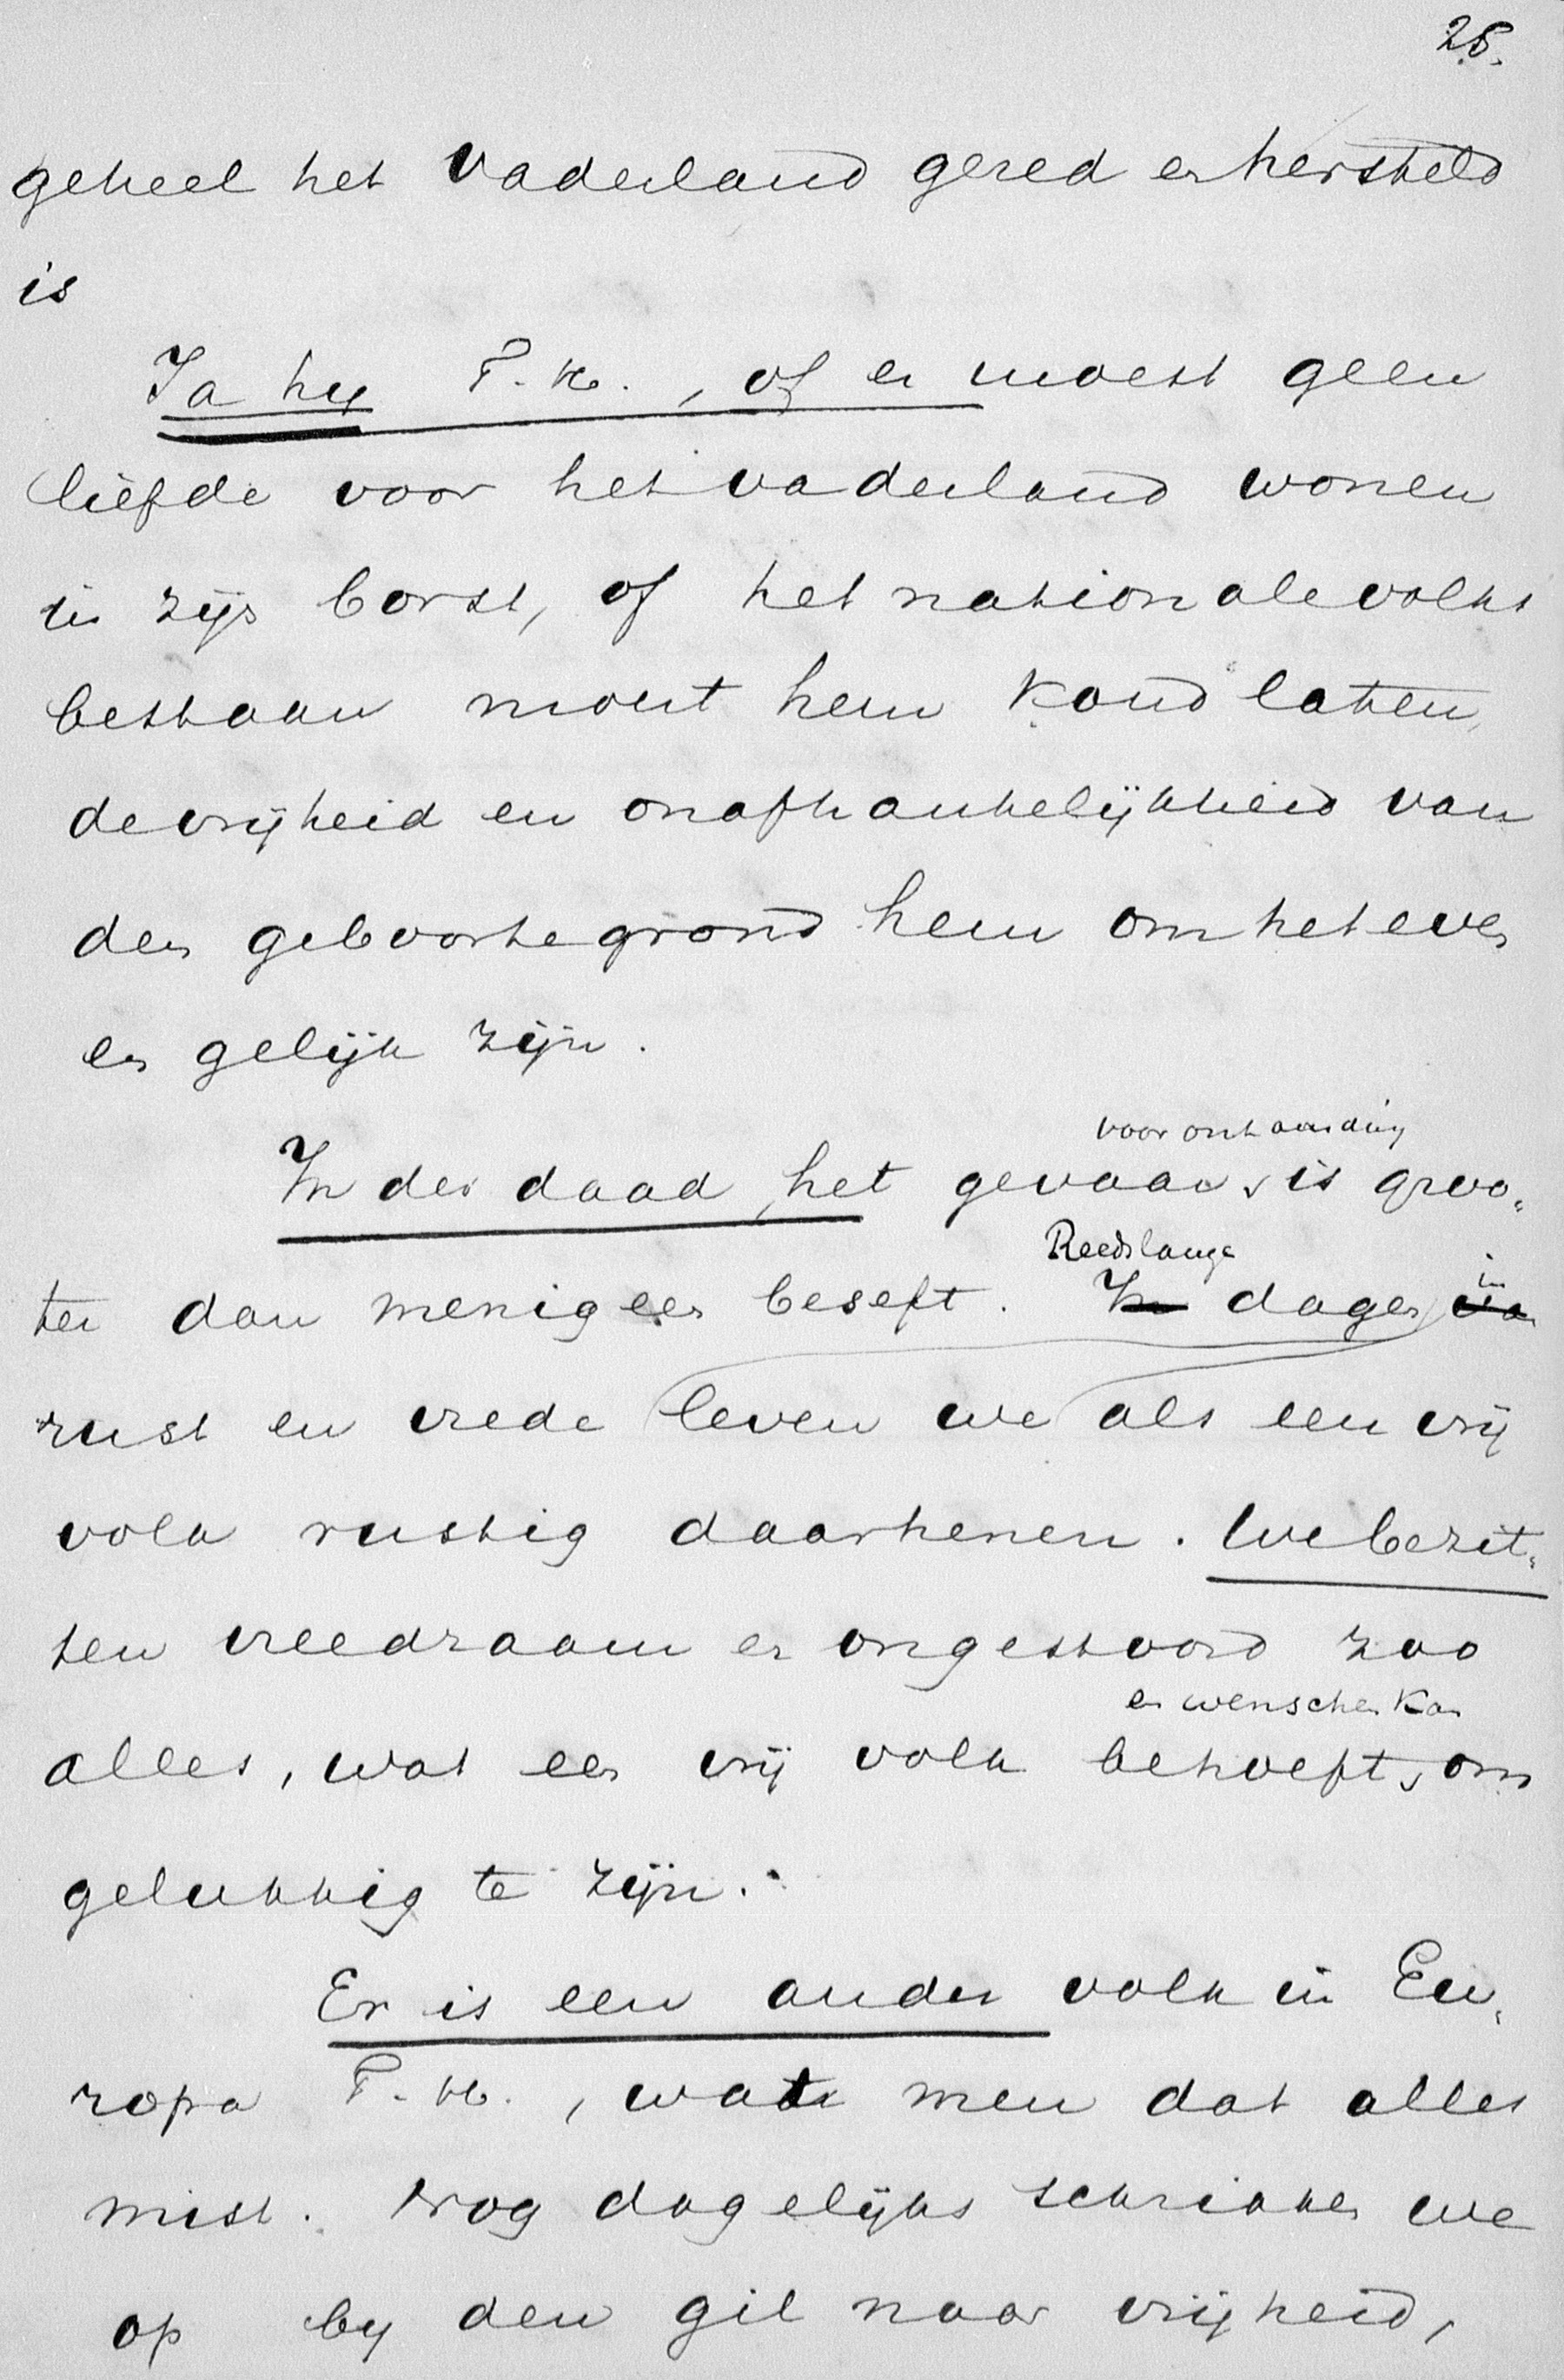 28.
geheel het vaderland gered en hersteld
is
Ja hy T. H., of er moest geen
liefde voor het vaderland wonen
in zijn borst, of het nationale volks
bestaan moest hem koud laten,
de vrijheid en onafhankelijkheid van
den geboortegrond hem om het even
en gelijk zijn.
voor ontaarding
In der daad, het gevaar is groo-
Reeds lange
ter dan menigeen beseft. In dagen in van
rust en vrede leven we als een vrij
volk rustig daarhenen. We bezit-
ten vreedzaam en ongestoord zoo
en wenschen kan
alles, wat een vrij volk behoeft, om
gelukkig te zijn.
Er is een ander volk in Eu-
ropa T. H., wat men dat alles
mist. Nog dagelijks schrikken we
op by den gil naar vrijheid,